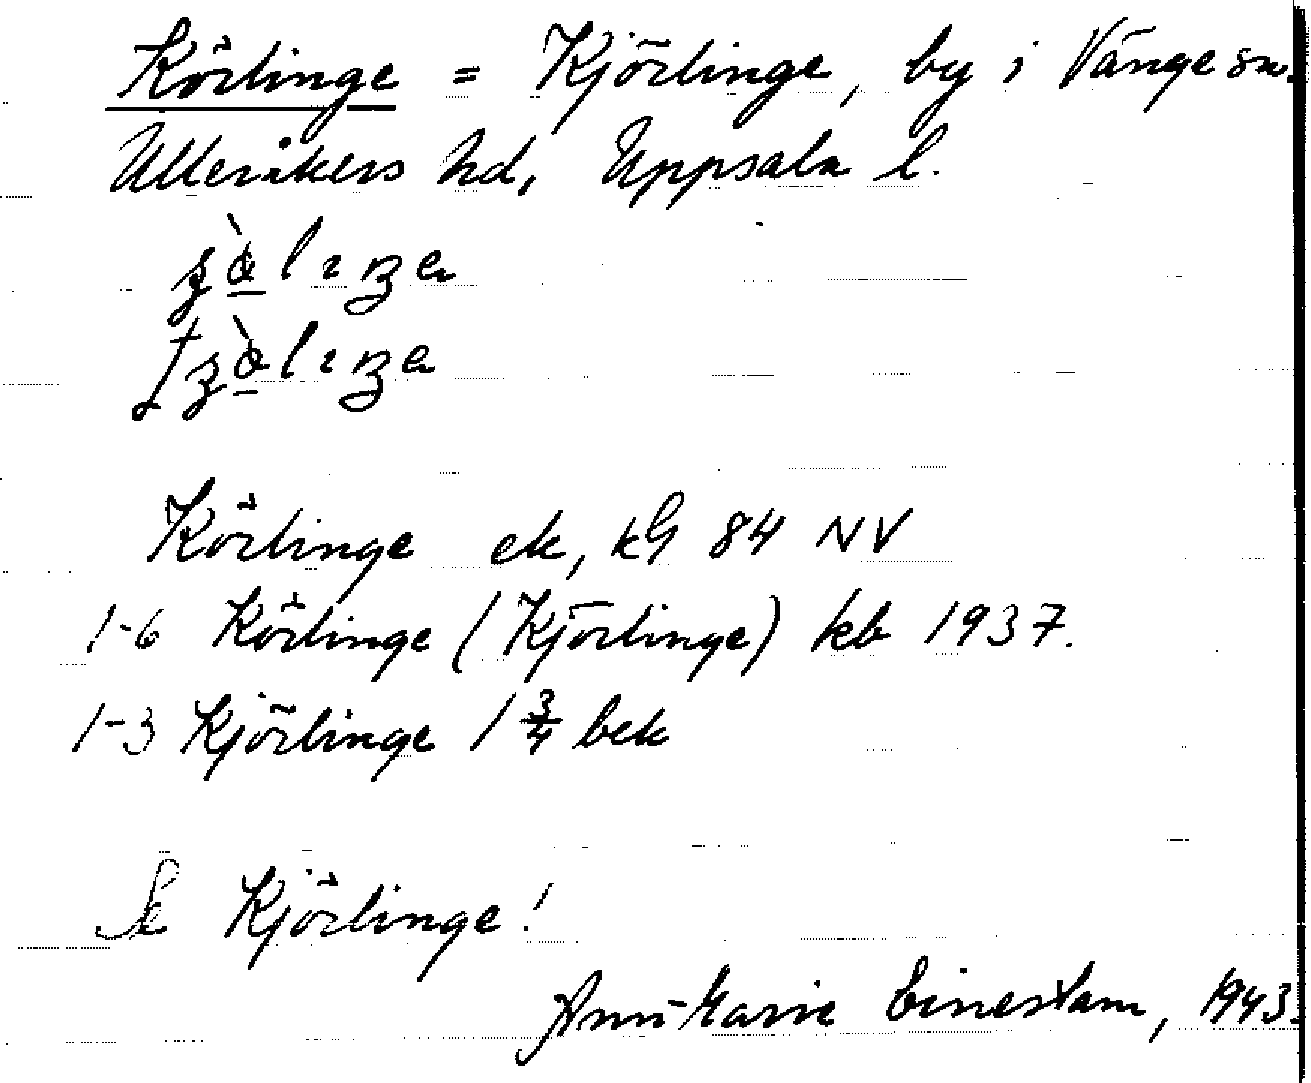 Körlinge = Kjörlinge, by i Vänge sn.
Ulleråkers hd, Uppsala l.
Körlinge ek, kG 84 NV
1-6 Körlinge (Kjörlinge) kb 1937.
1-3 Kjörlinge 1 3/4 bek
Se Kjörlinge!
Ann-Marie Einestam, 1943.